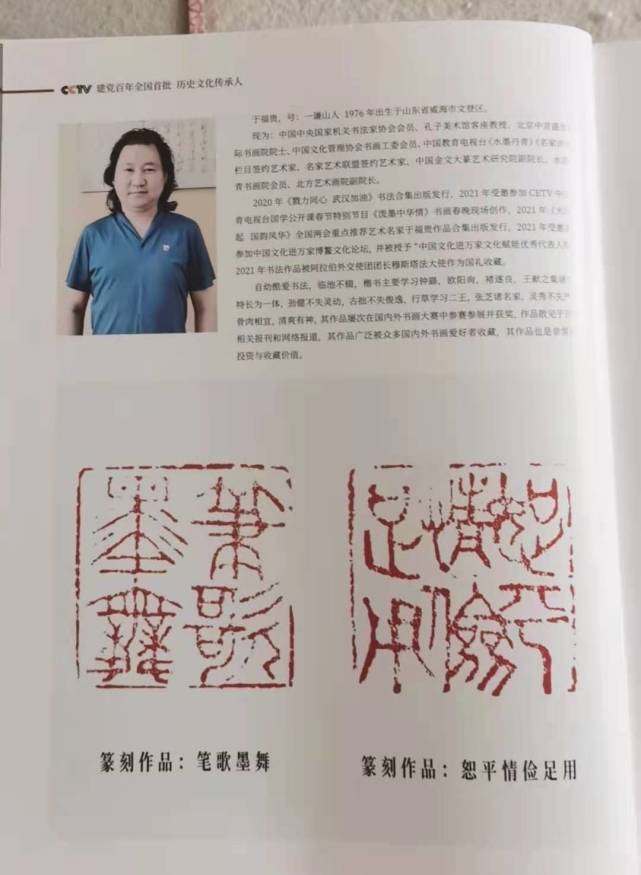 CCTV 建党百年全国首批 历史文化传承人
于福贵，号：一谦山人 1976年出生于山东省威海市文登区。
现为：中国中央国家机关书法家协会会员、孔子美术馆客座教授、北京中宣盛世
际书画院院士、中国文化管理协会书画工委会员、中国教育电视台《水墨丹青》《名家讲
栏目签约艺术家、名家艺术联盟签约艺术家、中国金文大篆艺术研究院副院长、水墨
青书画院会员、北方艺术画院副院长。
2020年《戮力同心 武汉加油》书法合集出版发行，2021年受邀参加CETV中
育电视台国学公开课春节特别节目《茂墨中华情》书画春晚现场创作，2021年《大
起 国韵风华》全国两会重点推荐艺术名家于福贵作品合集出版发行，2021年受邀
参加中国文化进万家博鳌文化论坛，并被授予“中国文化进万家文化赋能优秀代表人
2021年书法作品被阿拉伯外交使团团长穆斯塔法大使作为国礼收藏。
自幼酷爱书法，临池不辍，楷书主要学习钟繇、欧阳询、褚遂良、王献之集诸
特长为一体，劲健不失灵动，古拙不失俊逸，行草学习二王、张芝诸名家，灵秀不失
骨肉相宜，清爽有神，其作品屡次在国内外书画大赛中参赛参展并获奖，作品散见于
相关报刊和网络报道，其作品广泛被众多国内外书画爱好者收藏，其作品也是非常
投资与收藏价值。
笔歌墨舞
恕平情俭足用
篆刻作品：笔歌墨舞
篆刻作品：恕平情俭足用